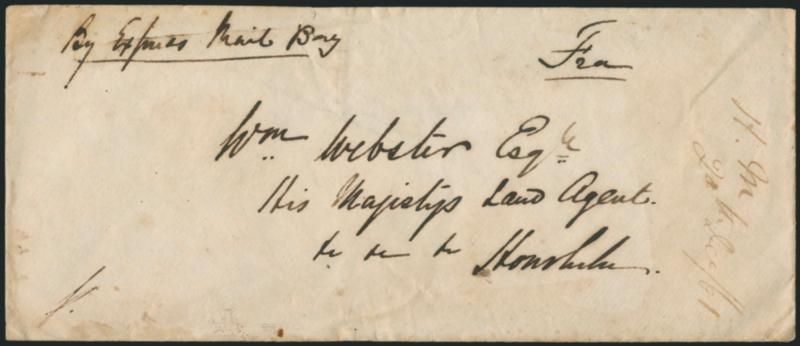 By Express Mail Bag
Fra
Wm Webster Esqre
His Majesty's Land Agent.
Honolulu.